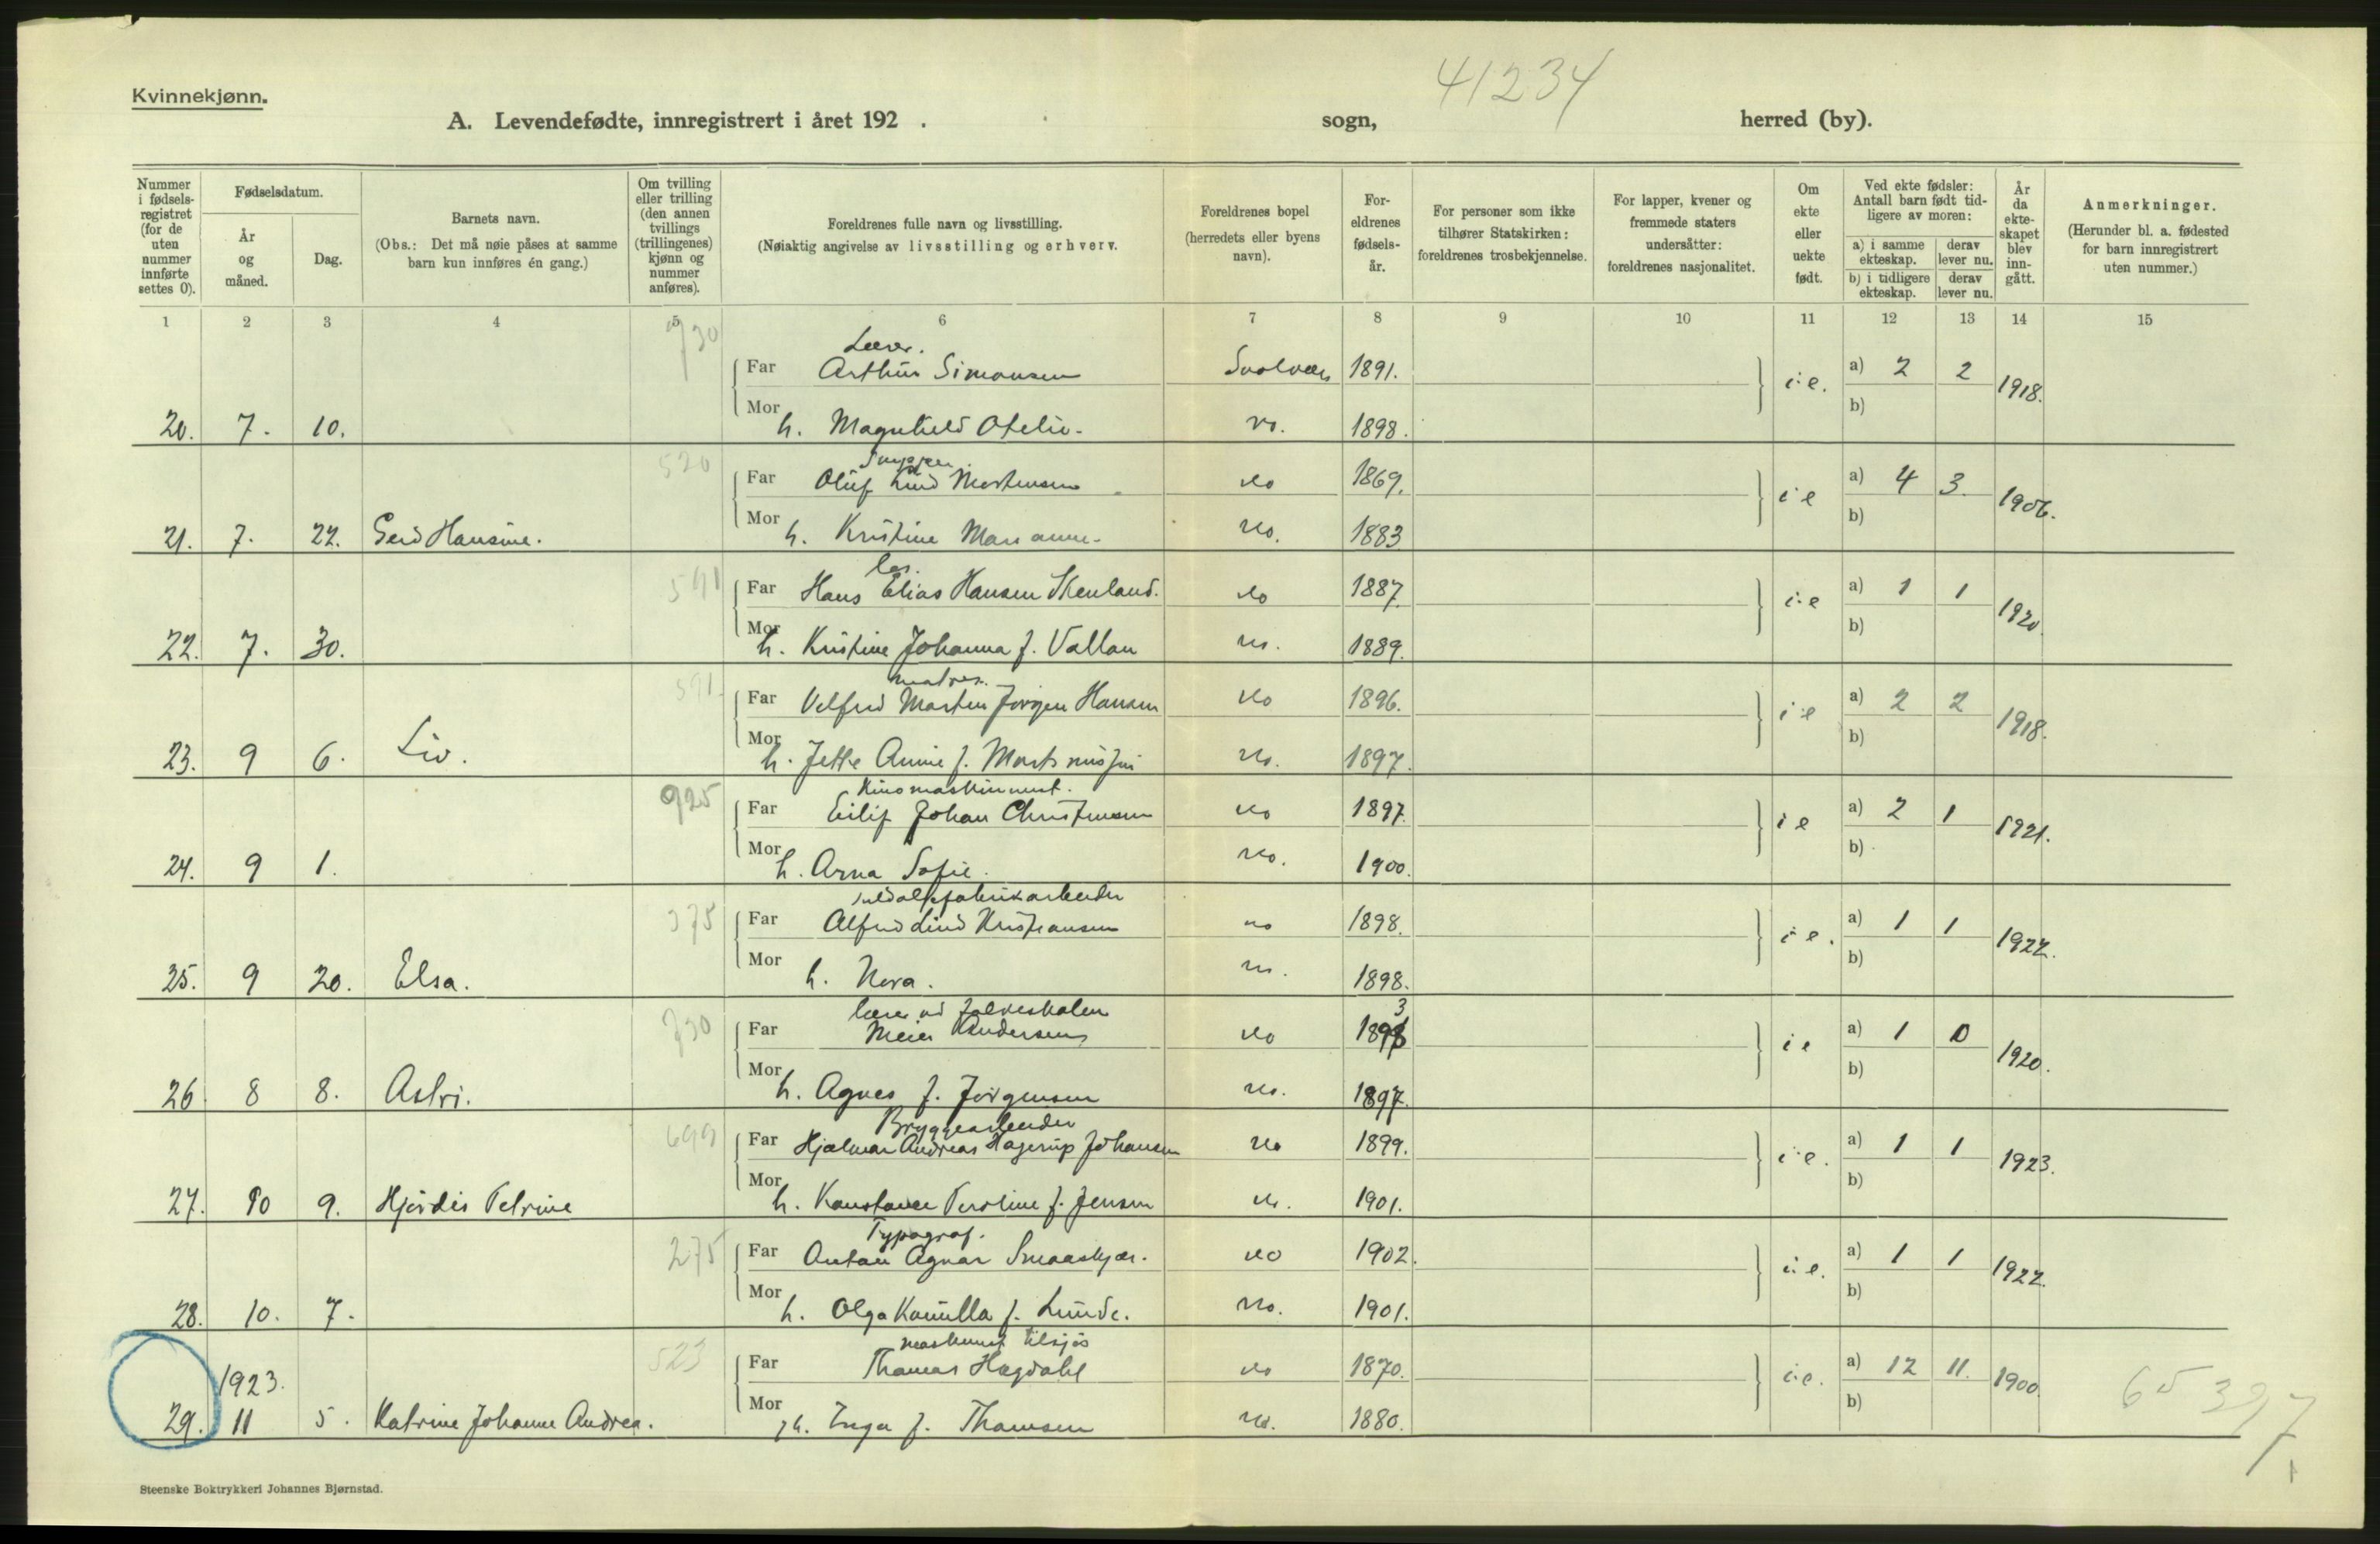 Kvinnekjønn.
41234
A. Levendefødte, innregistrert i året 192 . sogn, herred (by).
Nummer i fødsels-registret (for de uten nummer innførte settes 0).
Fødselsdatum.
År og måned.
Dag.
Barnets navn.
(Obs.: Det må nøie påses at samme barn kun innføres én gang.)
Om tvilling eller trilling (den annen tvillings (trillingenes) kjønn og nummer anføres).
Foreldrenes fulle navn og livsstilling.
(Nøiaktig angivelse av livsstilling og erhverv.
Foreldrenes bopel (herredets eller byens navn).
For-eldrenes fødsels-år.
For personer som ikke tilhører Statskirken: foreldrenes trosbekjennelse.
For lapper, kvener og fremmede staters undersåtter: foreldrenes nasjonalitet.
Om ekte eller uekte født.
Ved ekte fødsler: Antall barn født tid-ligere av moren:
a) i samme ekteskap. derav lever nu.
b) i tidligere ekteskap. derav lever nu.
År da ekte-skapet blev inn-gått.
Anmerkninger.
(Herunder bl. a. fødested for barn innregistrert uten nummer.)
1 2 3 4 5 6 7 8 9 10 11 12 13 14 15
730 Lærer.
Far Arthur Simonsen Svolvær 1891. i.e. a) 2 2 1918.
20. 7. 10. Mor h. Magnhild Otelie. 1898. b)
520
Far Oluf Lind Mortensen do 1869. i e a) 4 3. 1906.
21. 7. 22. Gerd Hansine. Mor h. Kristine Marianne. do. 1883 b)
591 los.
Far Hans Elias Hansen Skenland. do 1887. i.e a) 1 1 1920.
22. 7. 30. Mor h. Kristine Johanna f. Vallan 1889. b)
591 matros.
Far Velfred Morten Jörgen Hansen do 1896. i e a) 2 2 1918.
23. 9 6. Liv. Mor h. Jette Annie f. do. 1897. b)
925 Kinomaskinmest.
Far Eilif Johan Christensen do 1897. i e a) 2 1 1921.
24. 9 1. Mor h. Arna Sofie. do. 1900. b)
375 sildoljefabrikarbeider
Far Alfred Lind Kristiansen do 1898. i e. a) 1 1 1922.
25. 9 20. Elsa. Mor h. Nora. 1898. b)
730 lærer ved folkeskolen 3
Far Meier Andersen do 1898 i e a) 1 0 1920.
26 8 8. Astri. Mor h. Agnes f. Jörgensen do. 1897. b)
699 Bryggearbeider
Far Hjalmar Andreas Hagerup Johansen do 1899. i e. a) 1 1 1923.
27. 10 9. Hjördis Petrine Mor h. Konstance Peroline f. Jensen do. 1901. b)
275 Typograf.
Far Anton Agnar Smaaskjær. do 1902. i.e. a) 1 1 1922.
28. 10. 7. Mor h. Olga Kamilla f. Lunde. do. 1901. b)
523 maskinist tilsjös
Far Thomas Hagdahl do 1870. i.e. a) 12 11. 1900.
1923.
29. 11 5. Katrine Johanne Andrea. Mor h. Inga f. Thomsen do. 1880. b)
65397
Steenske Boktrykkeri Johannes Bjørnstad.